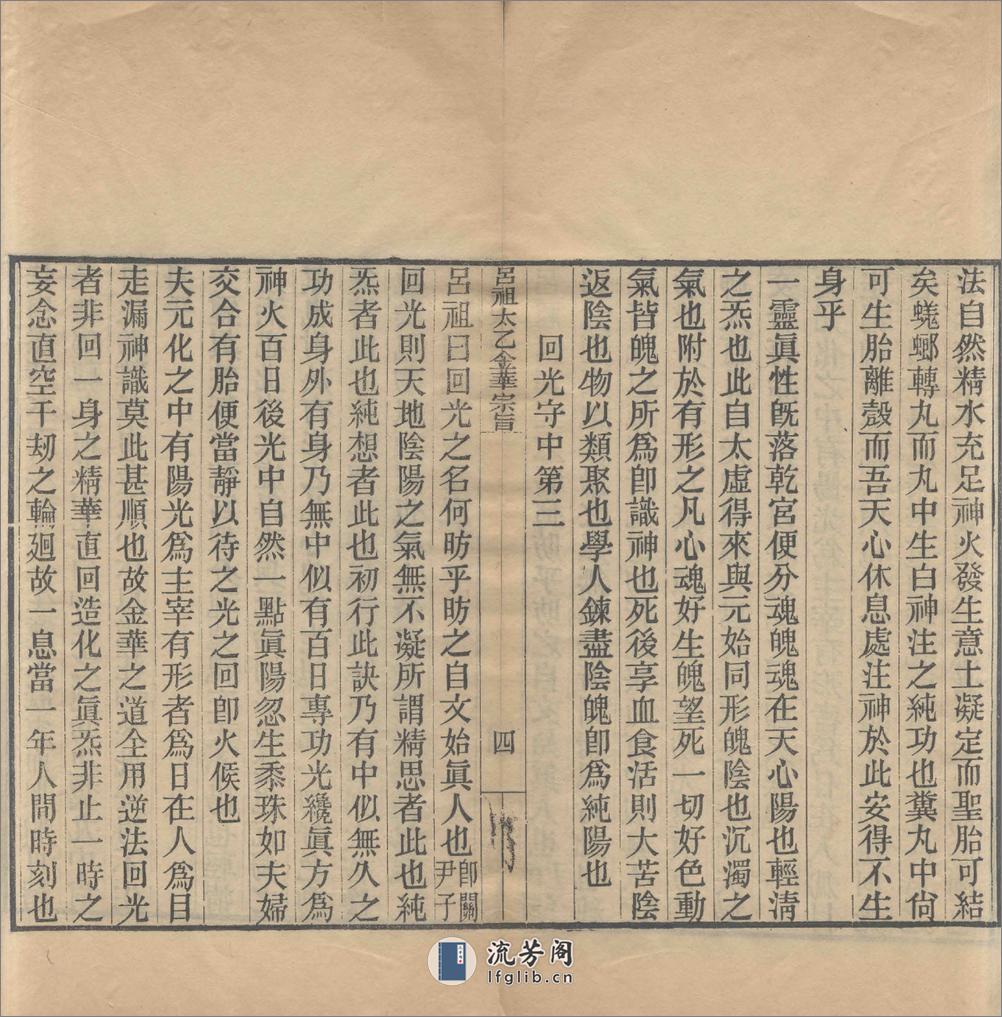 法自然精水充足神火發生意土凝定而聖胎可結
矣蜣螂轉丸而丸中生白神注之純功也糞丸中尙
可生胎離殼而吾天心休息處注神於此安得不生
身乎
一靈眞性旣落乾宮便分魂魄魂在天心陽也輕淸
之炁也此自太虛得來與元始同形魄陰也沉濁之
氣也附於有形之凡心魂好生魄望死一切好色動
氣皆魄之所爲卽識神也死後享血食活則大苦陰
返陰也物以類聚也學人鍊盡陰魄卽爲純陽也
回光守中第三
呂祖太乙金華宗旨
四
呂祖曰回光之名何昉乎昉之自文始眞人也卽關尹子
回光則天地陰陽之氣無不凝所謂精思者此也純
炁者此也純想者此也初行此訣乃有中似無久之
功成身外有身乃無中似有百日專功光纔眞方爲
神火百日後光中自然一點眞陽忽生黍珠如夫婦
交合有胎便當靜以待之光之回卽火候也
夫元化之中有陽光爲主宰有形者爲日在人爲目
走漏神識莫此甚順也故金華之道全用逆法回光
者非回一身之精華直回造化之眞炁非止一時之
妄念直空千刼之輪廻故一息當一年人間時刻也
流芳阁
lfglib.cn